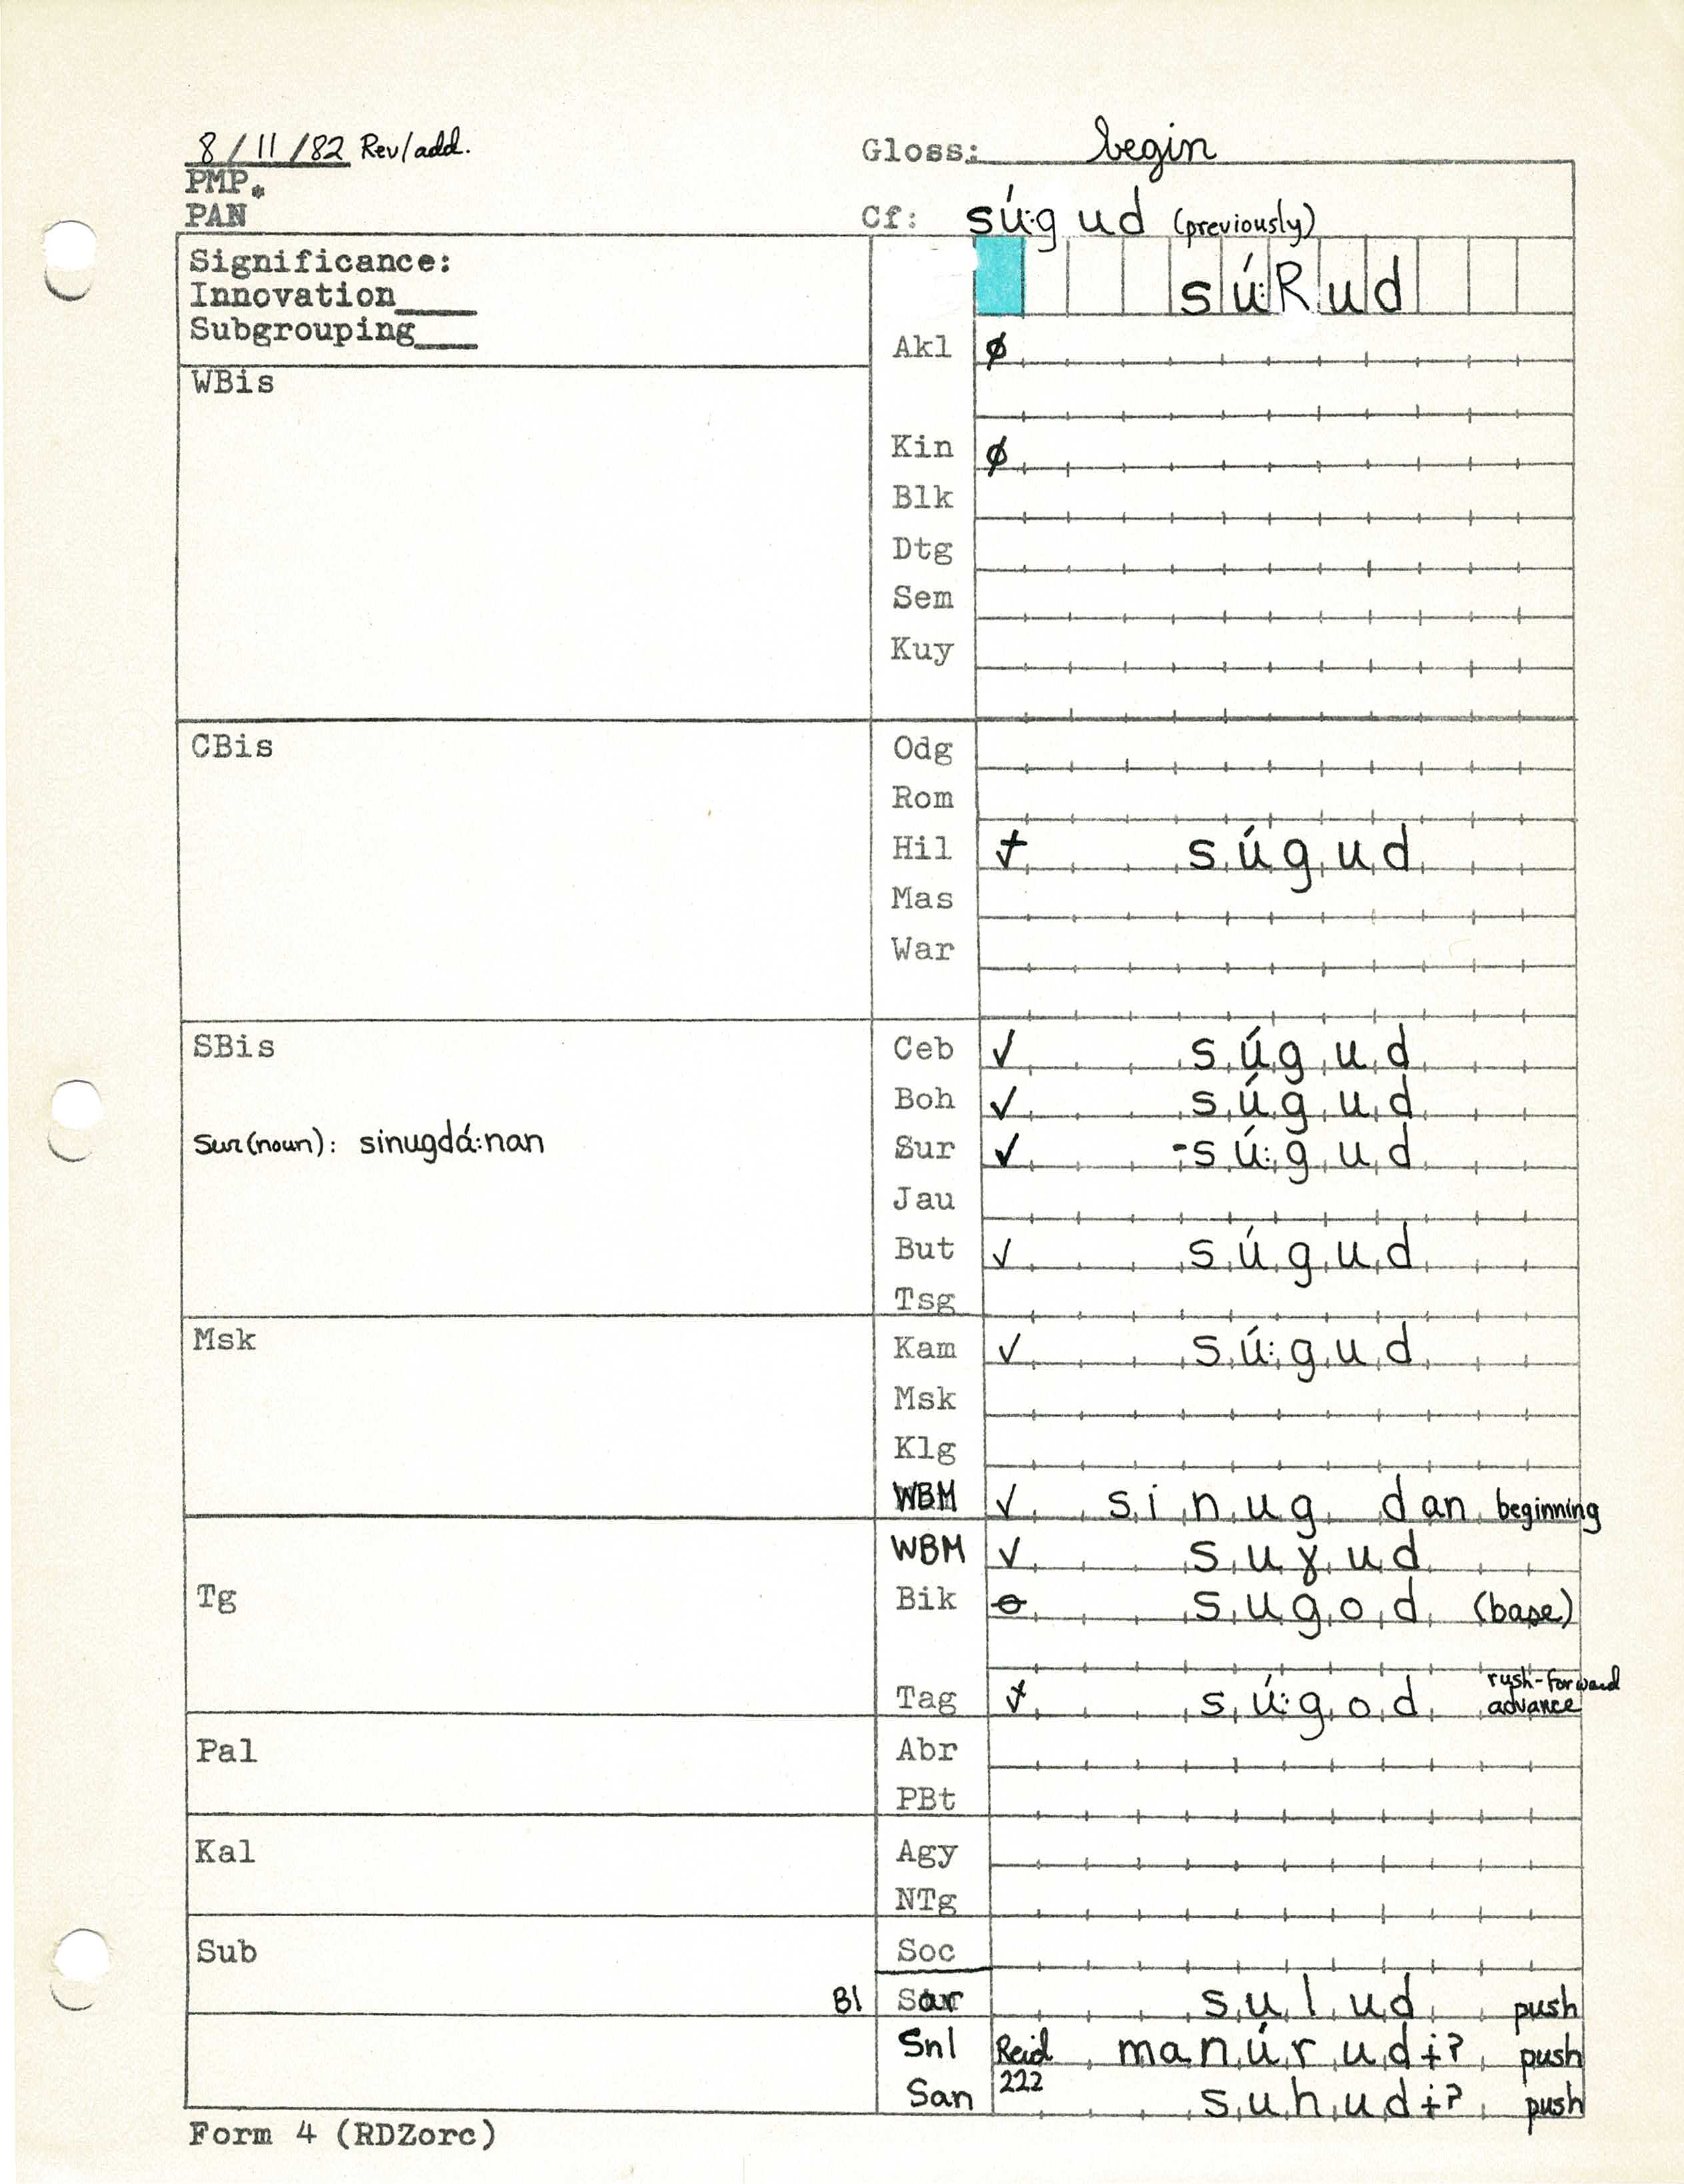 8/11/82 Rev/add.
Gloss: begin
PMP*
PAN
Cf: sú:gud (previously)
Significance:
Innovation
Subgrouping
sú:Rud
Akl ∅
WBis
Kin ∅
Blk
Dtg
Sem
Kuy
CBis
Odg
Rom
Hil súgud
Mas
War
SBis
Ceb ✓ súgud
Boh ✓ súgud
Sur (noun): sinugdá:nan
Sur ✓ -sú:gud
Jau
But ✓ súgud
Tsg
Msk
Kam ✓ sú:gud
Msk
Klg
WBM ✓ sinug dan beginning
WBM ✓ suɣud
Tg
Bik ⊖ sugod (base)
Tag sú:god rush-forward
advance
Pal
Abr
PBt
Kal
Agy
NTg
Sub
Soc
Bl Sar sulud push
Snl Reid manúrudɨʔ push
222
San suhudɨʔ push
Form 4 (RDZorc)